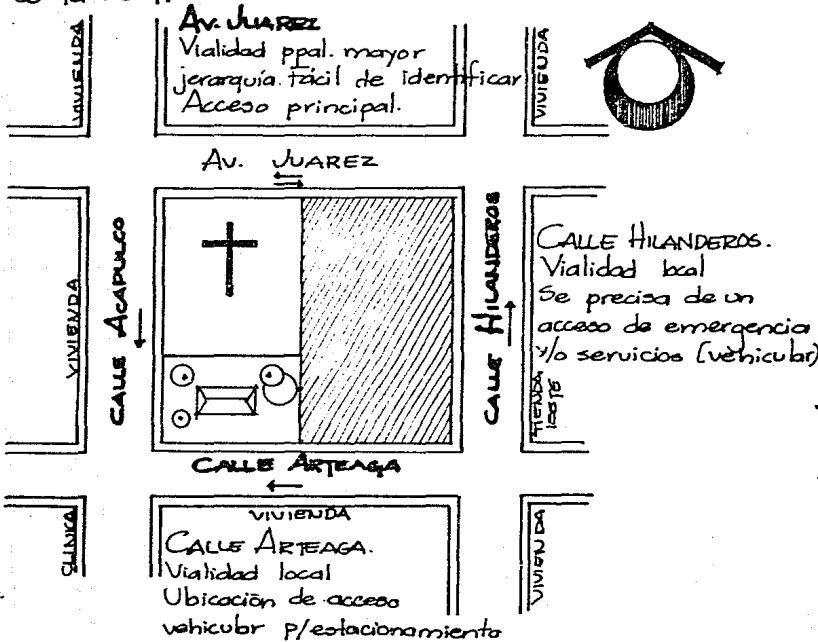 AV. JUAREZ
Vialidad ppal. mayor
jerarquía. Fácil de identificar
Acceso principal.
VIVIENDA
VIVIENDA
AV. JUAREZ
VIVIENDA
CALLE ACAPULCO
CALLE HILANDEROS
CALLE HILANDEROS.
Vialidad local
Se precisa de un
acceso de emergencia
y/o servicios (vehicular)
TIENDA
CALLE ARTEAGA
VIVIENDA
CALLE ARTEAGA.
Vialidad local
Ubicación de acceso
vehicular p/estacionamiento
VIVIENDA